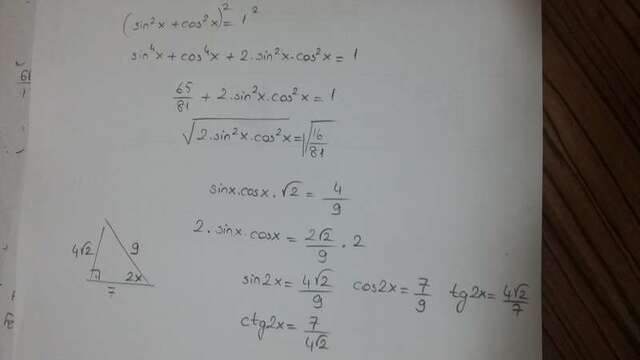 (sin²x + cos²x)² = 1²
sin⁴x + cos⁴x + 2·sin²x·cos²x = 1
65/81 + 2·sin²x·cos²x = 1
√2·sin²x·cos²x = √16/81
sinx·cosx·√2 = 4/9
2·sinx·cosx = 2√2/9·2
sin2x = 4√2/9 cos2x = 7/9 tg2x = 4√2/7
ctg2x = 7/4√2
4√2
9
2x